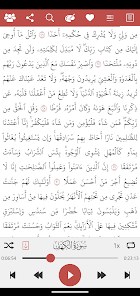 مِن وَلِيٍّ وَلَا يُشْرِكُ فِي حُكْمِهِ أَحَدًا ۝ وَاتْلُ مَا أُوحِيَ
إِلَيْكَ مِن كِتَابِ رَبِّكَ لَا مُبَدِّلَ لِكَلِمَاتِهِ وَلَن تَجِدَ مِن
دُونِهِ مُلْتَحَدًا ۝ وَاصْبِرْ نَفْسَكَ مَعَ الَّذِينَ يَدْعُونَ رَبَّهُم
بِالْغَدَاةِ وَالْعَشِيِّ يُرِيدُونَ وَجْهَهُ وَلَا تَعْدُ عَيْنَاكَ عَنْهُمْ
تُرِيدُ زِينَةَ الْحَيَاةِ الدُّنْيَا وَلَا تُطِعْ مَنْ أَغْفَلْنَا قَلْبَهُ عَن
ذِكْرِنَا وَاتَّبَعَ هَوَاهُ وَكَانَ أَمْرُهُ فُرُطًا ۝ وَقُلِ الْحَقُّ
مِن رَّبِّكُمْ فَمَن شَاءَ فَلْيُؤْمِن وَمَن شَاءَ فَلْيَكْفُرْ إِنَّا أَعْتَدْنَا
لِلظَّالِمِينَ نَارًا أَحَاطَ بِهِمْ سُرَادِقُهَا وَإِن يَسْتَغِيثُوا يُغَاثُوا
بِمَاءٍ كَالْمُهْلِ يَشْوِي الْوُجُوهَ بِئْسَ الشَّرَابُ وَسَاءَتْ
مُرْتَفَقًا ۝ إِنَّ الَّذِينَ آمَنُوا وَعَمِلُوا الصَّالِحَاتِ إِنَّا لَا
نُضِيعُ أَجْرَ مَنْ أَحْسَنَ عَمَلًا ۝ أُولَٰئِكَ لَهُمْ جَنَّاتُ
عَدْنٍ تَجْرِي مِن تَحْتِهِمُ الْأَنْهَارُ يُحَلَّوْنَ فِيهَا مِنْ أَسَاوِرَ
مِن ذَهَبٍ وَيَلْبَسُونَ ثِيَابًا خُضْرًا مِّن سُندُسٍ وَإِسْتَبْرَقٍ
سُورَةُ الكَهْفِ
1x
0:06:54
0:23:13